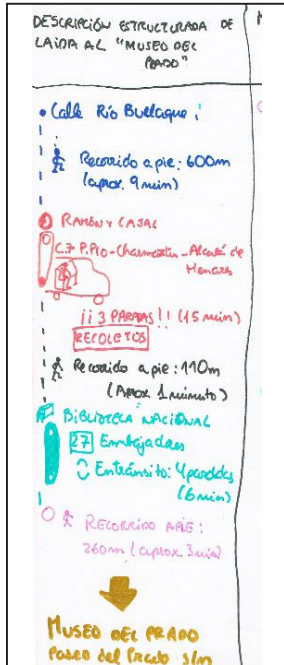 DESCRIPCIÓN ESTRUCTURADA DE
LA IDA AL "MUSEO DEL
PRADO"
Calle Río Bullaque:
Recorrido a pie: 600m
(aprox. 9 min)
RAMÓN Y CAJAL
C.7 P.Pío-Chamartín-Alcalá de
Henares
¡¡3 PARADAS!! (15 min)
RECOLETOS
Recorrido a pie: 110m
(Aprox 1 minuto)
BIBLIOTECA NACIONAL
27 Embajadores
En tránsito: 4 paradas
(6 min)
RECORRIDO A PIE:
260m (aprox. 3 min)
MUSEO DEL PRADO
Paseo del Prado s/n